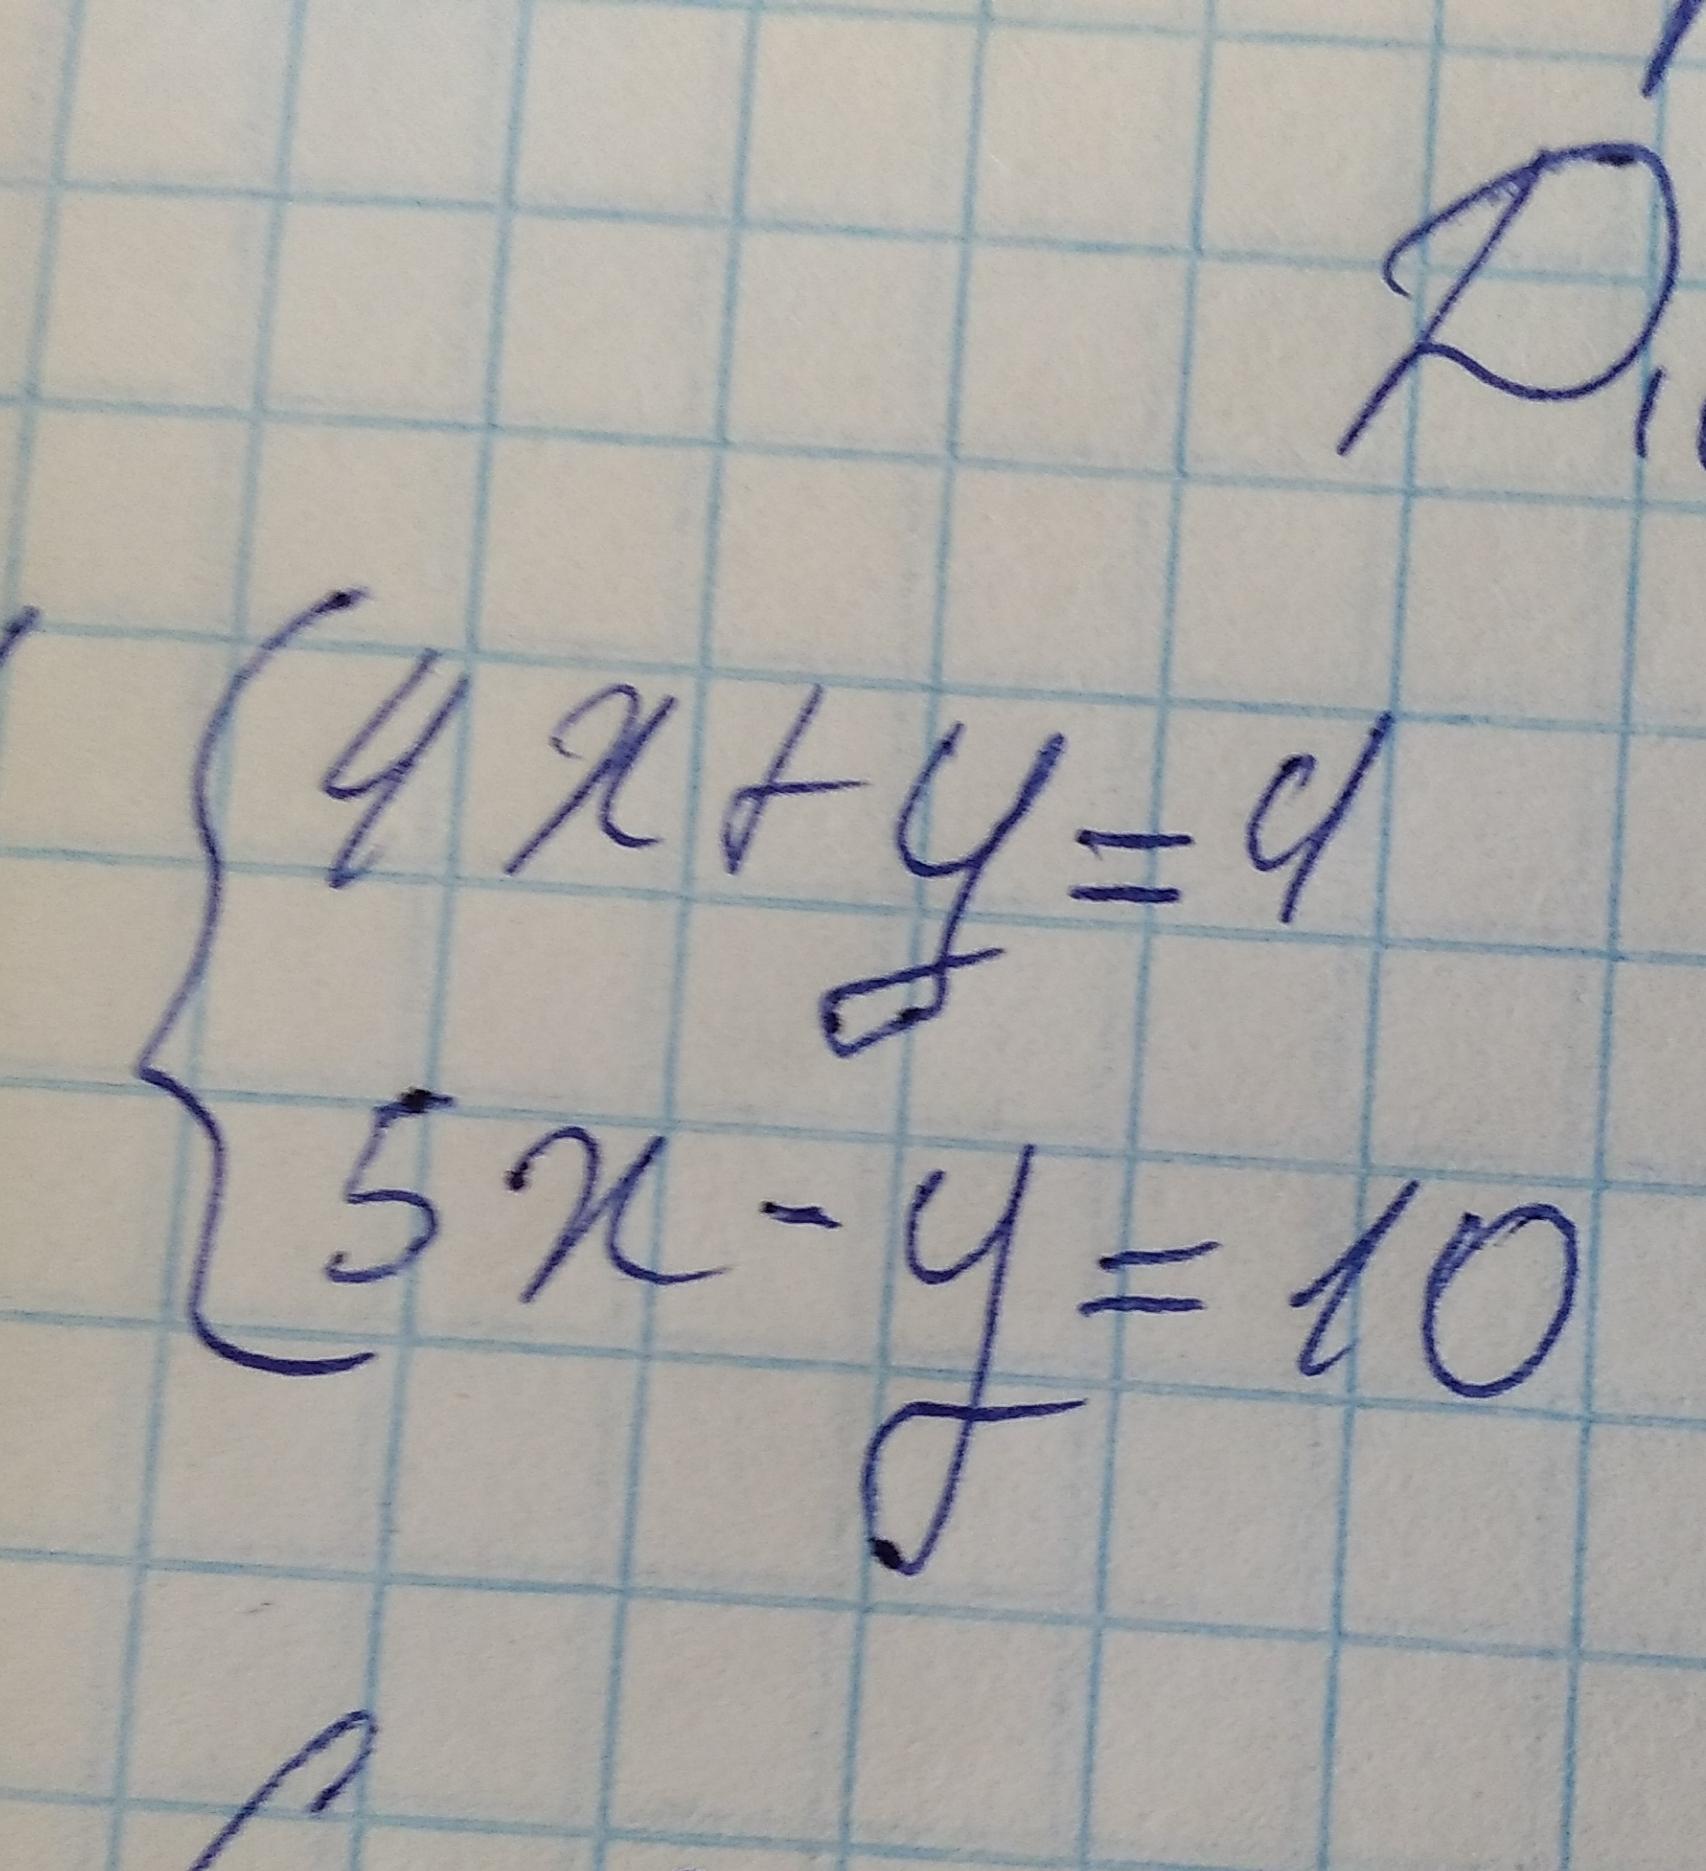 D,
4x+y=4
5x-y=10